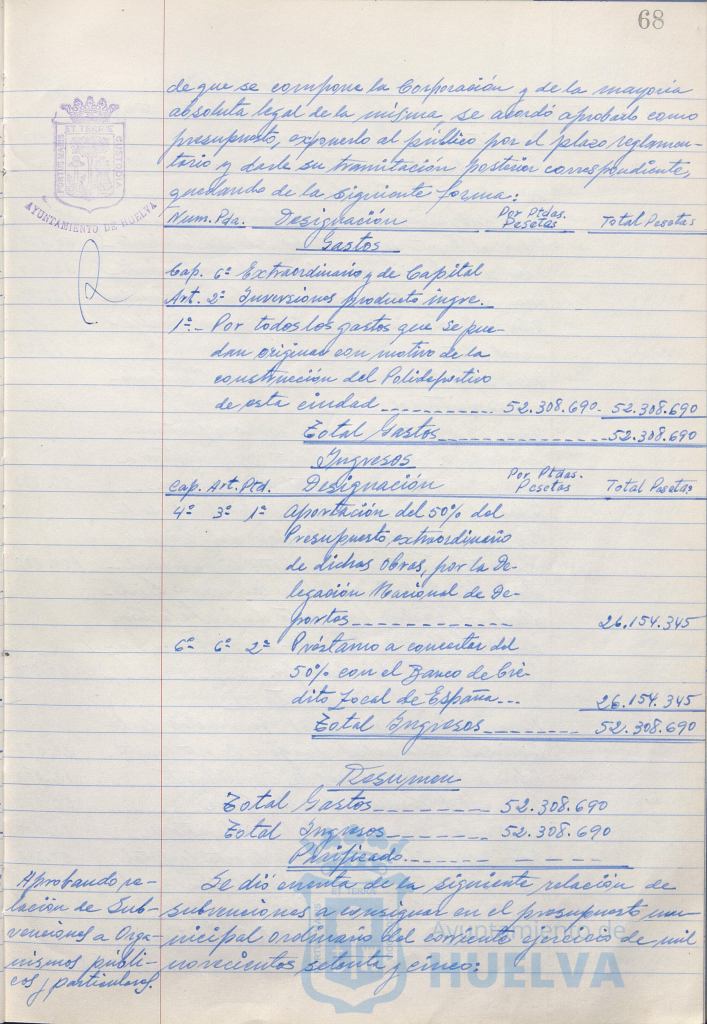 68
de que se compone la Corporación y de la mayoria
absoluta legal de la misma, se acordó aprobarlo como
presupuesto, exponerlo al público por el plazo reglamen-
tario y darle su tramitación posterior correspondiente,
quedando de la siguiente forma:
AYUNTAMIENTO DE HUELVA
Num. Pda. Designación Por Ptdas. Pesetas Total Pesetas
Gastos
Cap. 6º Extraordinario y de Capital
Art. 2º Inversiones producto ingre.
1º.- Por todos los gastos que se pue-
dan originar con motivo de la
construcción del Polideportivo
de esta ciudad ---------- 52.308.690.- 52.308.690
Total Gastos ---------- 52.308.690
Ingresos
Cap. Art. Ptd. Designación Por Ptdas. Pesetas Total Pesetas
4º 3º 1º Aportación del 50% del
Presupuesto extraordinario
de dichas obras, por la De-
legación Nacional de De-
portes ---------- 26.154.345
6º 6º 2º Préstamo a concertar del
50% con el Banco de Cré-
dito Local de España --- 26.154.345
Total Ingresos ---------- 52.308.690
Resumen
Total Gastos ---------- 52.308.690
Total Ingresos ---------- 52.308.690
---------- - - - -
Aprobando re-
lación de Sub-
venciones a Orga-
nismos públi-
cos y particulares.
Se dió cuenta de la siguiente relación de
subvenciones a consignar en el presupuesto mu-
nicipal ordinario del corriente ejercicio de mil
novecientos setenta y cinco:
Ayuntamiento de
HUELVA